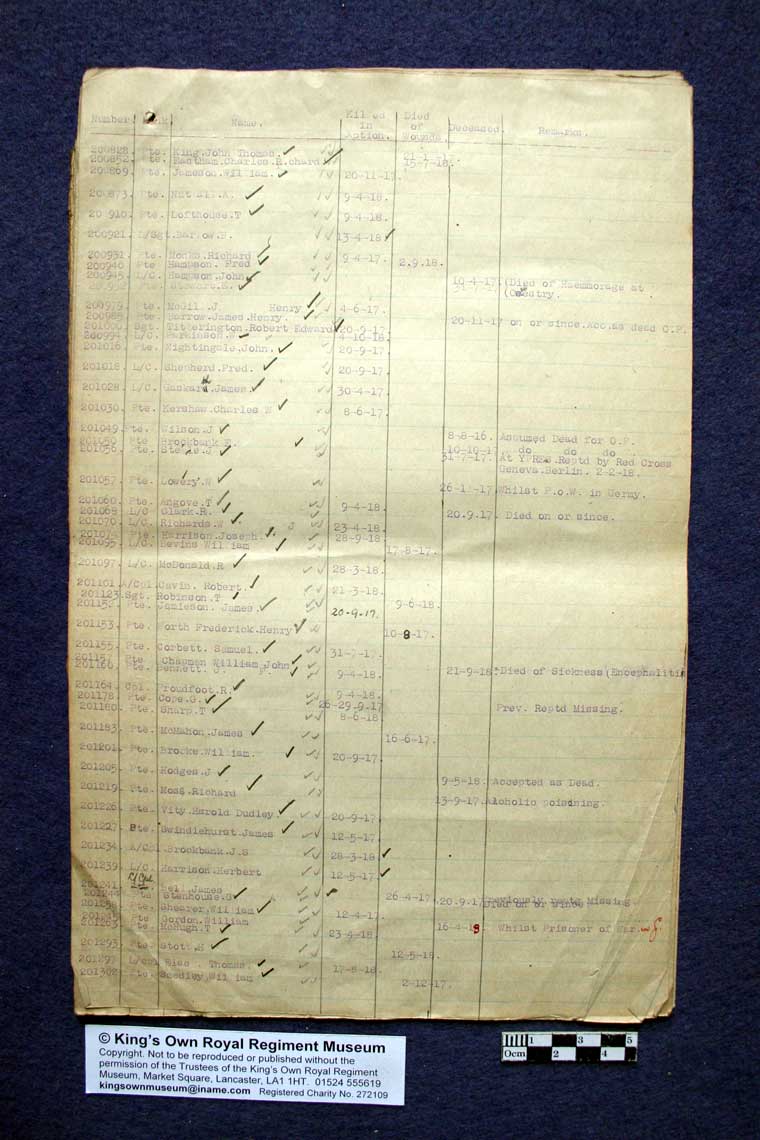 Number. Rank. Name. Killed in Action. Died of Wounds. Deceased. Remarks.
200828. Pte. King.John Thomas.
200852. Pte. Eastham.Charles.Richard 15-7-18.
200869. Pte. Jameson.William. 20-11-17.
200873. Pte. A. 9-4-18.
20 910. Pte. Lofthouse.T 9-4-18.
200921. L/Sgt.Barrow.E. 13-4-18.
200931. Pte. Monks.Richard 9-4-17.
200940 Pte Hampson. Fred 2.9.18.
200945. L/C. Hampson.John 10-4-17. (Died of Haemmorage at
Pte. (Coventry.
200979. Pte. McGill.J Henry 4-6-17.
200985. Pte. Barrow.James.Henry. 20-11-17 on or since.Acc.as dead O.P.
201000. Sgt. Titterington.Robert Edward 20-9-17.
200994. L/C. Parkinson.W 4-10-18.
201016. Pte. Nightingale.John. 20-9-17.
201018. L/C. Shepherd.Fred. 20-9-17.
201028. L/C. Gaskarth.James. 30-4-17.
201030. Pte. Kershaw.Charles N 8-6-17.
201049. Pte. Wilson.J 8-8-16. Assumed Dead for O.P.
201050 Pte Brockbank E. 10-10-17 do do do
201056. Pte. J 31-7-17. At YPRES.Reptd by Red Cross
Geneva.Berlin. 2-2-18.
201057. Pte. Lowery.W 26-1-17. Whilst P.o.W. in Germy.
201060. Pte. Angove.T 9-4-18.
201068 L/C Clark.R. 20.9.17. Died on or since.
201070. L/C. Richards.W 23-4-18.
201074 Pte. Harrison.Joseph. 28-9-18.
201095. L/C. Bevins William 17-8-17.
201097. L/C. McDonald.R 28-3-18.
201101. A/Cpl.Gavin. Robert. 21-3-18.
201123. Sgt. Robinson.T 9-6-18.
Pte. Jamieson. James. 20-9-17.
201153. Pte. North Frederick.Henry 10-8-17.
201155. Pte. Corbett. Samuel. 31-7-17.
Pte Chapman William John 21-9-18. Died of Sickness (Encephalitis
201160. Pte. Bennett. 9-4-18.
201164. Cpl. Proudfoot.R. 9-4-18.
201178. Pte. Cope.G. 26-29.9.17.
201180. Pte. Sharp.T 8-6-18. Prev. Reptd Missing.
201183. Pte. McMahon.James 16-6-17.
201201. Pte. Brooke.William. 20-9-17.
201205. Pte. Hodges.J 9-5-18. Accepted as Dead.
201219. Pte. Moss.Richard 13-9-17. Alcoholic poisining.
201226. Pte. Vity.Harold Dudley 20-9-17.
201227. Pte. Swindlehurst.James 12-5-17.
201234. A/Cpl.Brockbank.J.S 28-3-18
201239. L/C. Harrison.Herbert 12-5-17.
201241. L/Cpl Bell.James 26-4-17.
201244 Pte Stenhouse.G 20.9.17 Previously reptd Missing
Died on or since
201258. Pte. Shearer.William 12-4-17.
Pte Gordon.William
201263. Pte. McHugh.T 23-4-18. 16-4-18. Whilst Prisoner of War.
201293. Pte. Stott.H 12-5-18.
201297. L/Cpl Thomas. 17-8-18.
201302. Pte. Seedley.William 2-12-17.
© King's Own Royal Regiment Museum
Copyright. Not to be reproduced or published without the
permission of the Trustees of the King's Own Royal Regiment
Museum, Market Square, Lancaster, LA1 1HT. 01524 555619
kingsownmuseum@iname.com Registered Charity No. 272109
0cm 1 2 3 4 5